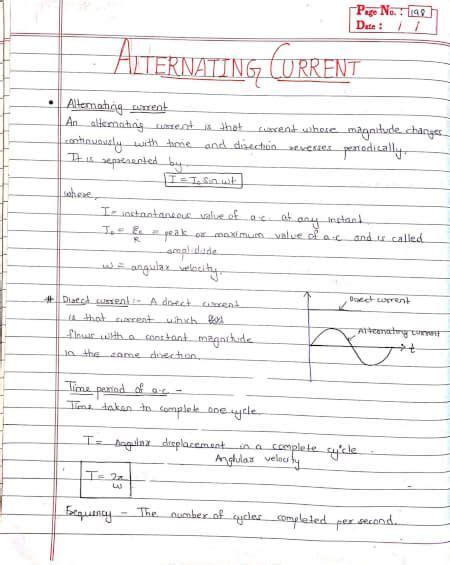 Page No. : 198
Date : / /
ALTERNATING CURRENT
• Alternating current
An alternating current is that current whose magnitude changes
continuously with time and direction reverses periodically.
It is represented by
I = I₀ sin ωt
where,
I = instantaneous value of a.c. at any instant
I₀ = E₀/R = peak or maximum value of a.c and is called
amplitude
ω = angular velocity.
# Direct current :- A direct current
is that current which
flows with a constant magnitude
in the same direction.
Direct current
Alternating current
t
Time period of a.c -
Time taken to complete one cycle.
T = Angular displacement in a complete cycle
Angular velocity
T = 2π/ω
Frequency - The number of cycles completed per second.